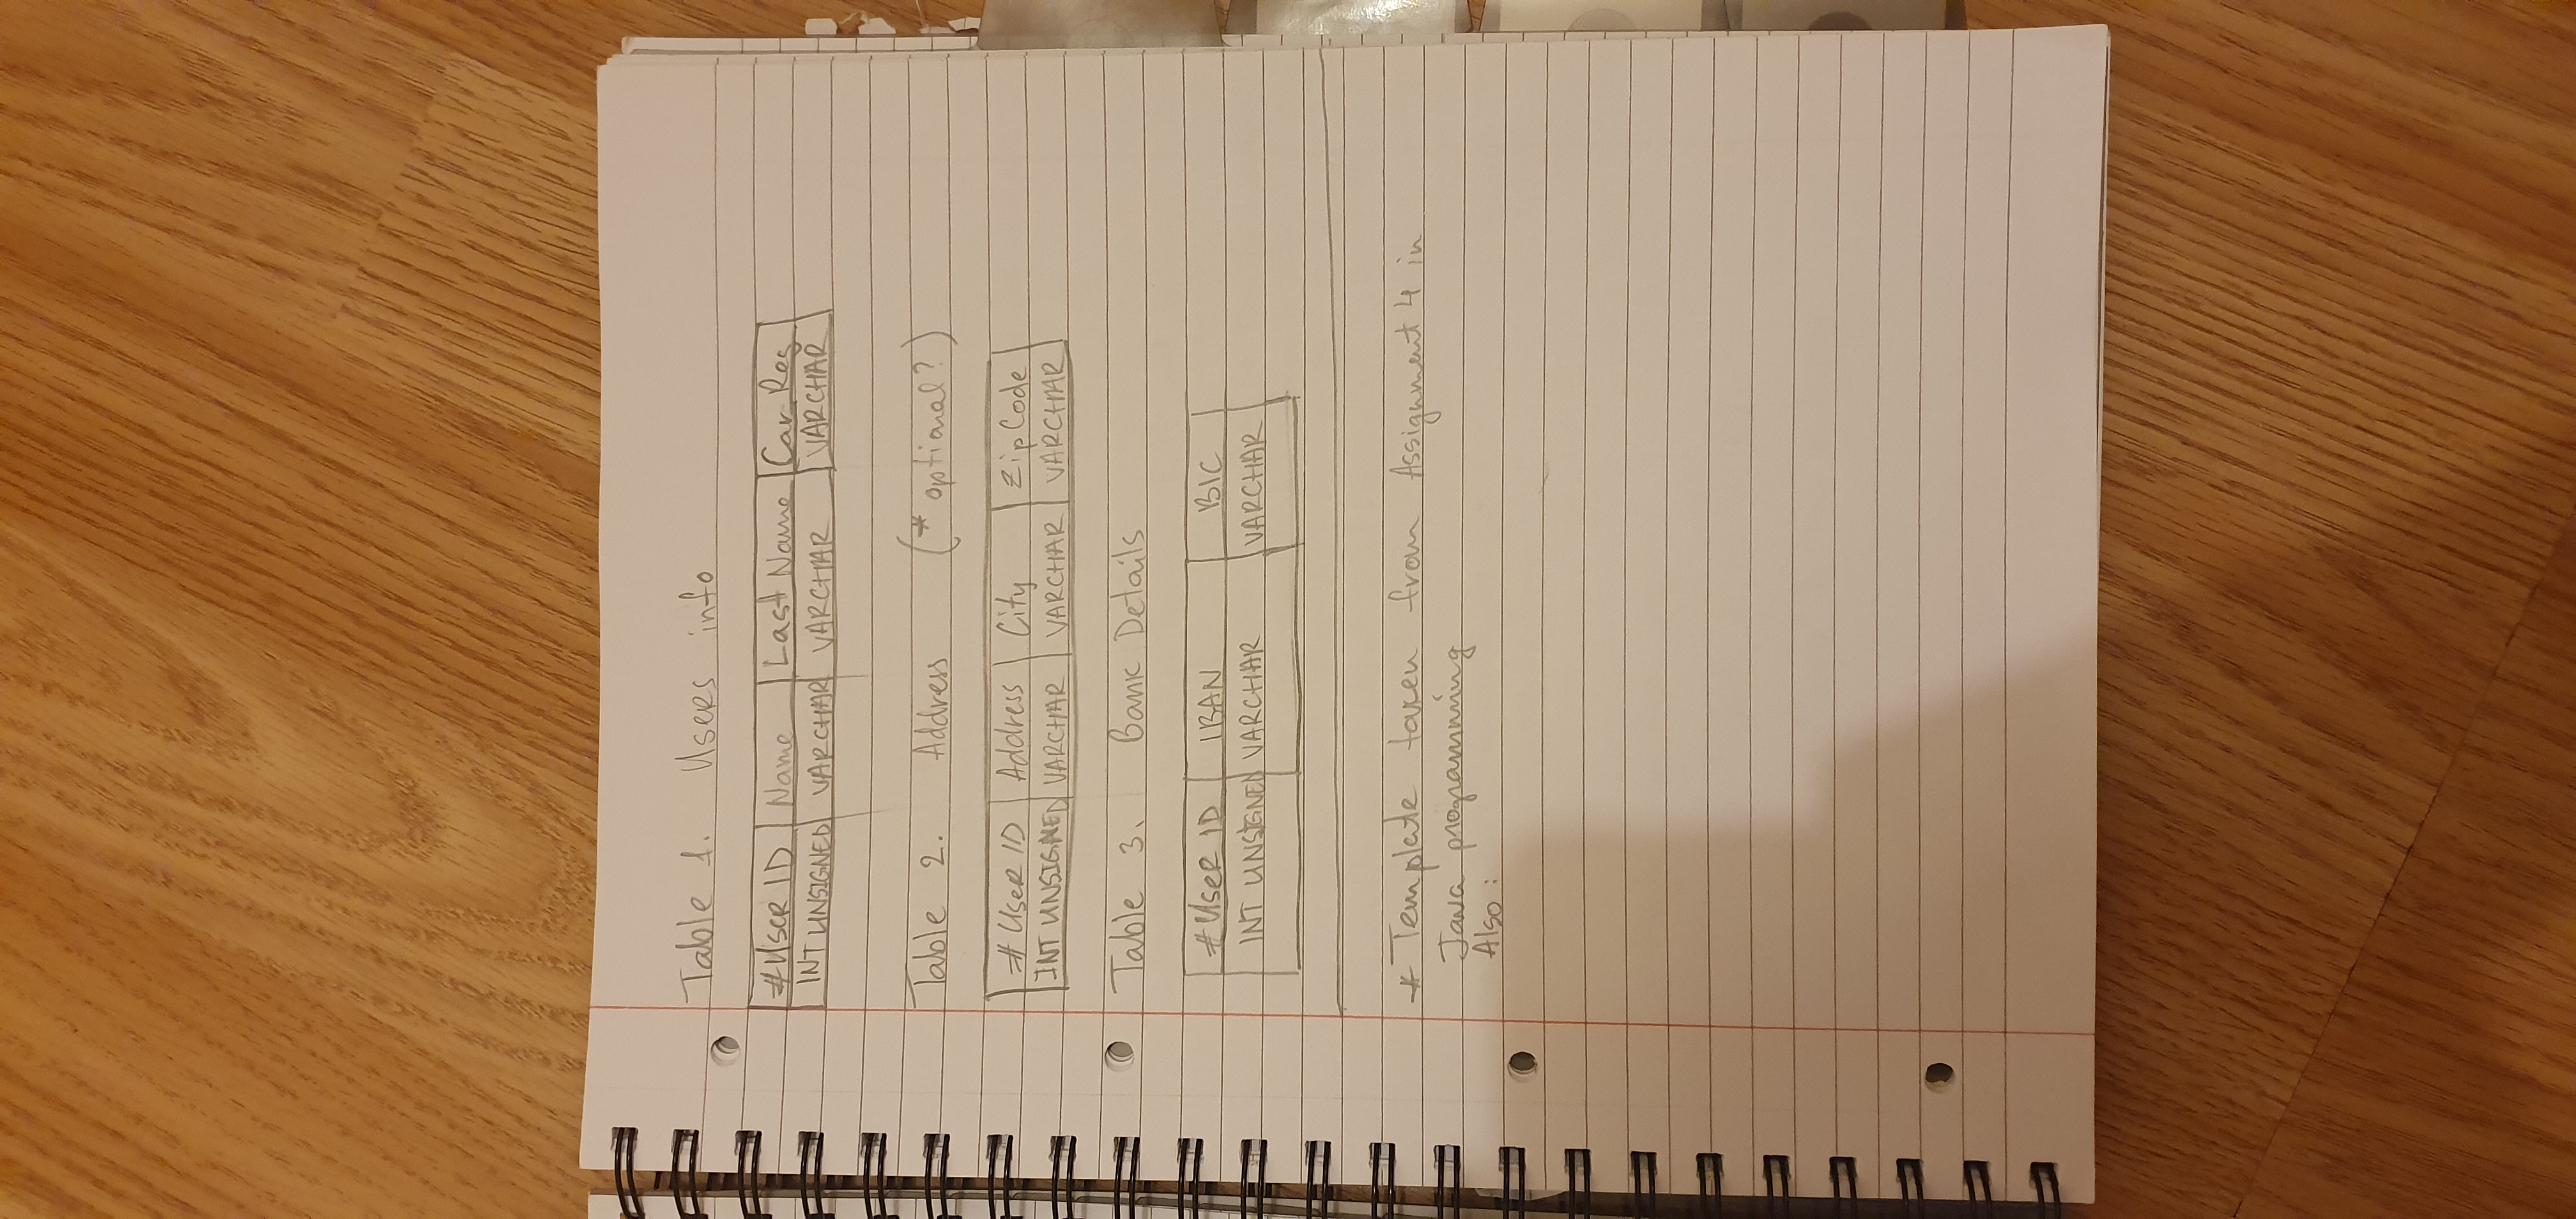 Table 1. Users info
#User ID Name Last Name Car Reg
INT UNSIGNED VARCHAR VARCHAR VARCHAR
Table 2. Address (* optional?)
# User ID Address City Zip Code
INT UNSIGNED VARCHAR VARCHAR VARCHAR
Table 3. Bank Details
#User ID IBAN BIC
INT UNSIGNED VARCHAR VARCHAR
* Template taken from Assignment 4 in
Java programming
Also :